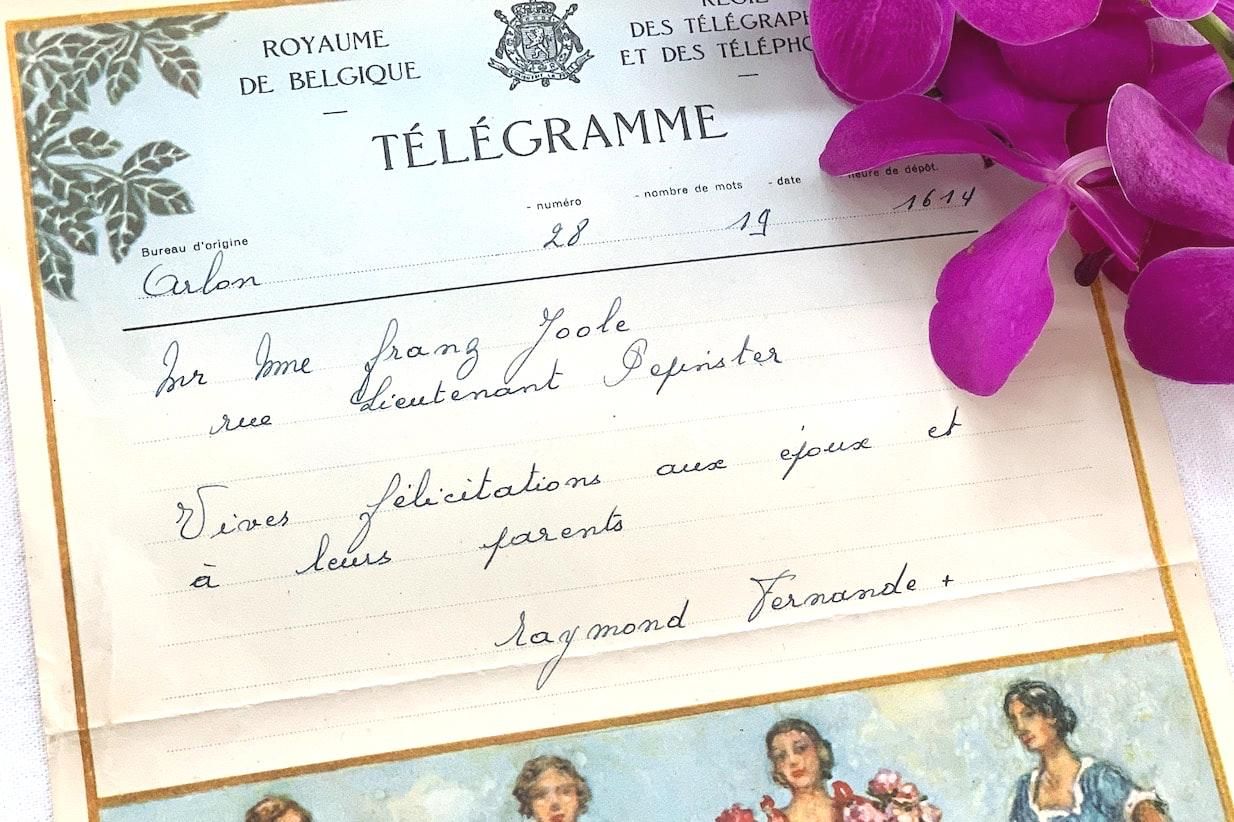 ROYAUME
DE BELGIQUE
RÉGIE
DES TÉLÉGRAPH
ET DES TÉLÉPHO
TÉLÉGRAMME
Bureau d'origine - numéro - nombre de mots - date - heure de dépôt.
Arlon 28 19 1614
Mr Mme franz Joole
rue Lieutenant Pepinster
Vives félicitations aux époux et
à leurs parents
Raymond Fernande +